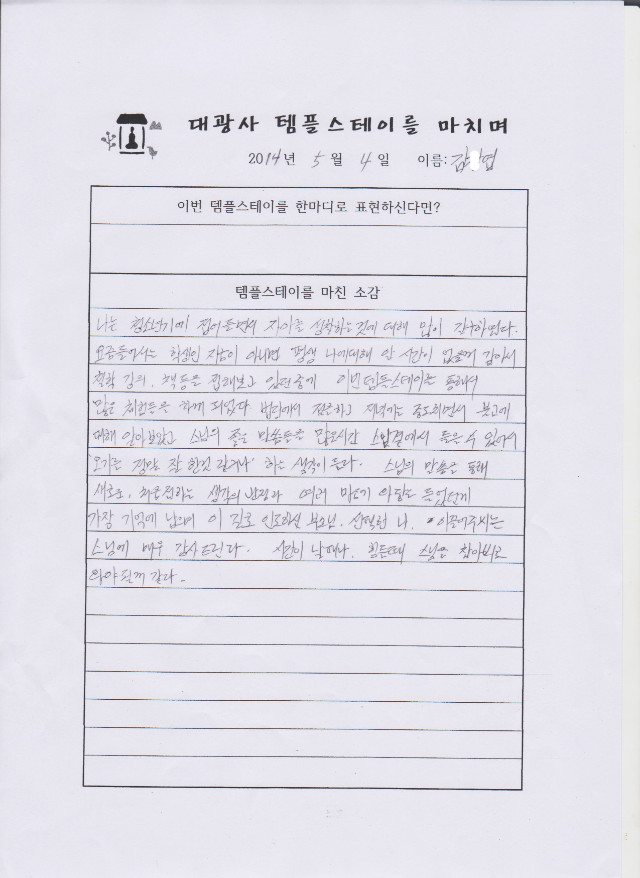 대광사 템플스테이를 마치며
2014년 5월 4일 이름: 김 엽
이번 템플스테이를 한마디로 표현하신다면?
템플스테이를 마친 소감
나는 청소년기에 접어들면서 자아를 성찰하는 것에 대해 많이 한다.
요즘들어서는 학생인 지금이 아니면 평생 나에대해 알 시간이 없을것 같아서
철학 강의, 책들을 접해보고 있던중에 이번 템플스테이를 통해서
많은 체험들을 하게 되었다 법당에서 하고 저녁에는 불교에
대해 알아보았고 스님의 좋은 말씀들을 많은시간 옆에서 들을 수 있어서
'오기를 정말 잘 한것 같구나' 하는 생각이 든다. 스님의 말씀을 통해
새로운, 처음접하는 생각의 여러 들었던게
가장 기억에 남으며 이 길로 인도하신 부모님, 선택한 나, 이끌어주시는
스님께 매우 감사드린다. 시간이 날때나, 힘든때 스님을 찾아뵈러
와야 될꺼 같다.